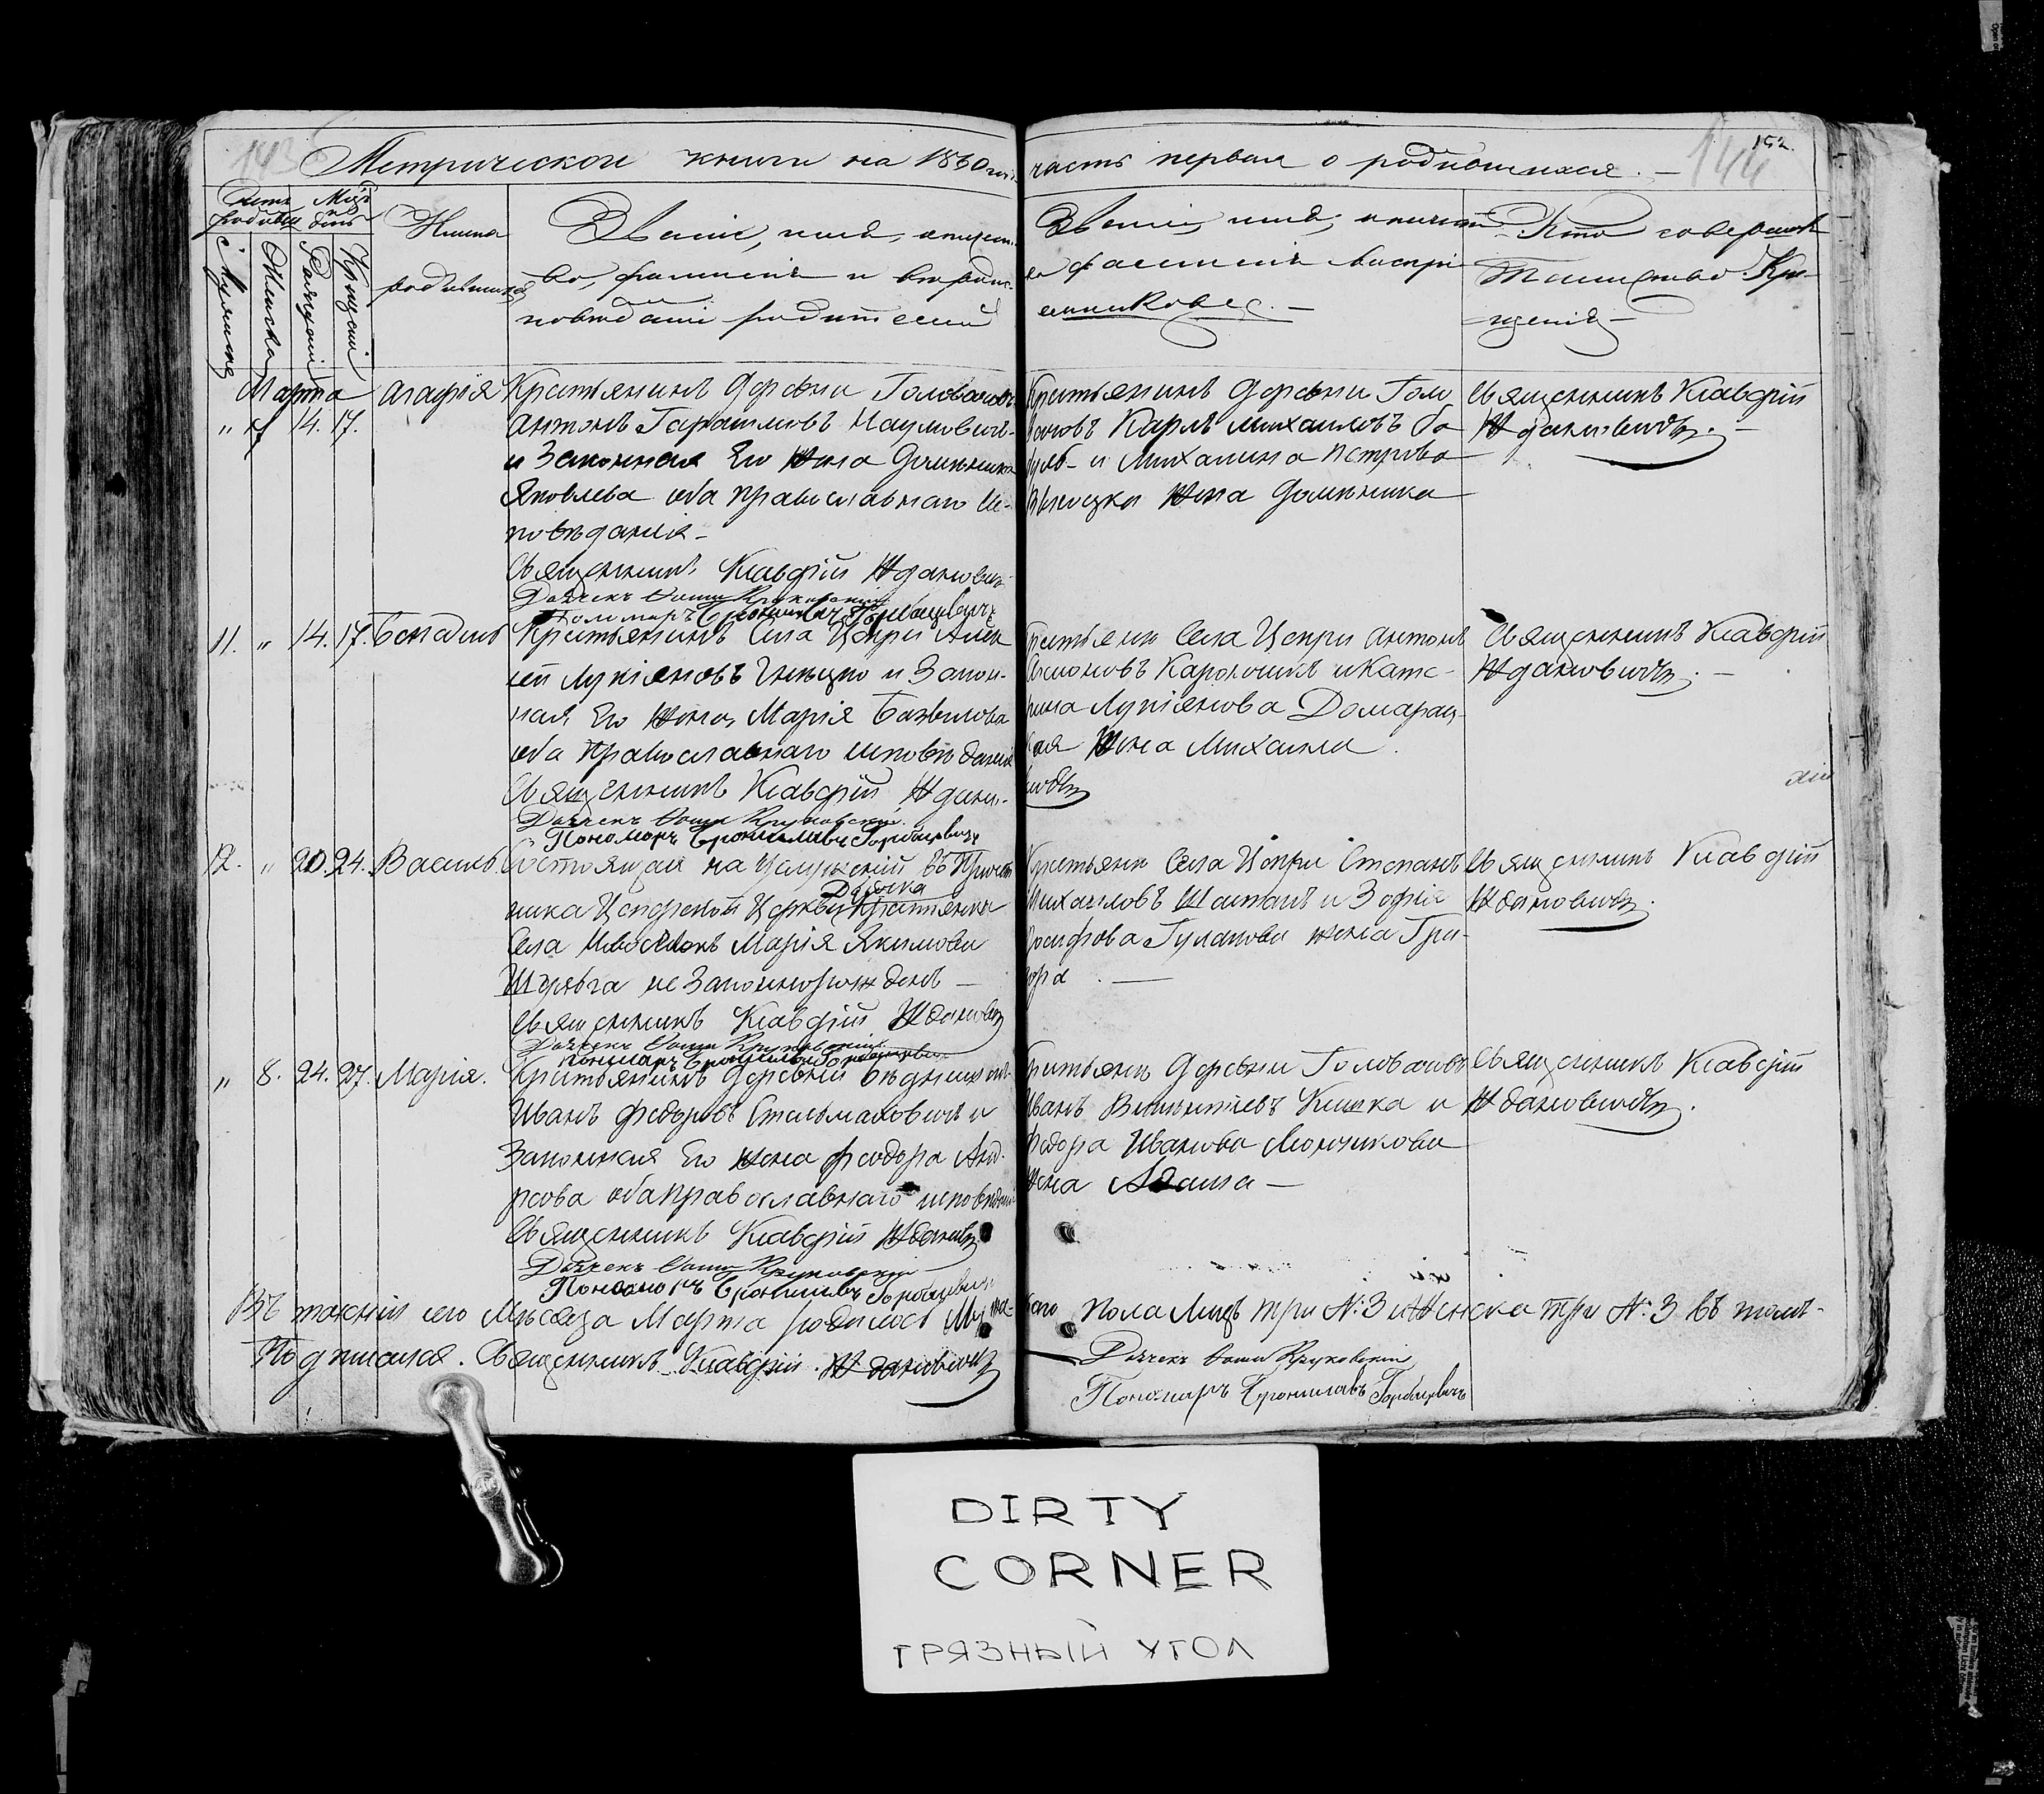 143
Метрической книги на 1860 годъ
часть первая о родившихся. —
144
152.
Счетъ родивш
Мсц и день
Мужеска
Женска
Рожденія
Крещенія
Имена
родившихся
Званіе, имя, отчест-
во, фамилія и вѣроис-
повѣданіе родителей
Званіе, имя, отчест
во фамилія воспрі
емниковъ. —
Кто совершалъ
Таинство Кре-
щенія —
Марта
" 7 14. 17.
Агафія
Крестьянинъ Деревни Головачовъ
Антонъ Наумовичъ
и Законная Его Жена Доминика
Яковлева оба православнаго ис-
повѣданія —
Священникъ Клавдій Ждановичъ
Дьячекъ Крживовскій
Пономаръ Брониславъ Горбацевичъ
Крестьянинъ Деревни Голо
вачовъ Карлъ Михаиловъ
и Михалина Петрова
Жена Доминика
Священникъ Клавдій
Ждановичъ. —
11. " 14. 17.
Крестьянинъ Села Цепры Алек
сей Лукіяновъ и Закон-
ная Его Жена Марія
оба православнаго исповѣданія
Священникъ Клавдій Ждано-
вичъ
Дьячекъ
Пономаръ Брониславъ Горбацевичъ
Крестьянин Села Цепры Антонъ
и Кате-
рина Лукіянова Домарац-
кая Жена Михаила.
Священникъ Клавдій
Ждановичъ. —
12. " 20. 24. Василь
Состоящая на услуженіи въ
ника Цепрской Церкви Крестьянка
Девка
Села Марія Якимова
незаконнорожденъ —
Священникъ Клавдій Ждановичъ
Дьячекъ
Пономаръ Брониславъ Горбацевичъ
Крестьянин Села Цепры Степанъ
Михаиловъ и Зофія
Іосифова жена Гри-
гора . —
Священникъ Клавдій
Ждановичъ.
" 8. 24. 27. Марія.
Крестьянинъ Деревни
Иванъ Федоровъ Стельмаховичъ и
Законная Его жена Феодора Анд-
реова оба православнаго исповѣданія
Священникъ Клавдій Ждановичъ
Дьячекъ
Пономаръ Брониславъ Горбацевичъ
Крестьянин Деревни Головачовъ
Иванъ Викентіевъ Кишка и
Федора Иванова
Жена Адама —
Священникъ Клавдій
Ждановичъ.
Въ теченіи сего Мѣсяца Марта родилось Муже-
скаго пола Лицъ три №: 3 и Женска три №: 3 въ томъ-
Подписался. Священникъ Клавдій Ждановичъ
Дьячекъ
Пономаръ Брониславъ Горбацевичъ
DIRTY
CORNER
ГРЯЗНЫЙ УГОЛ